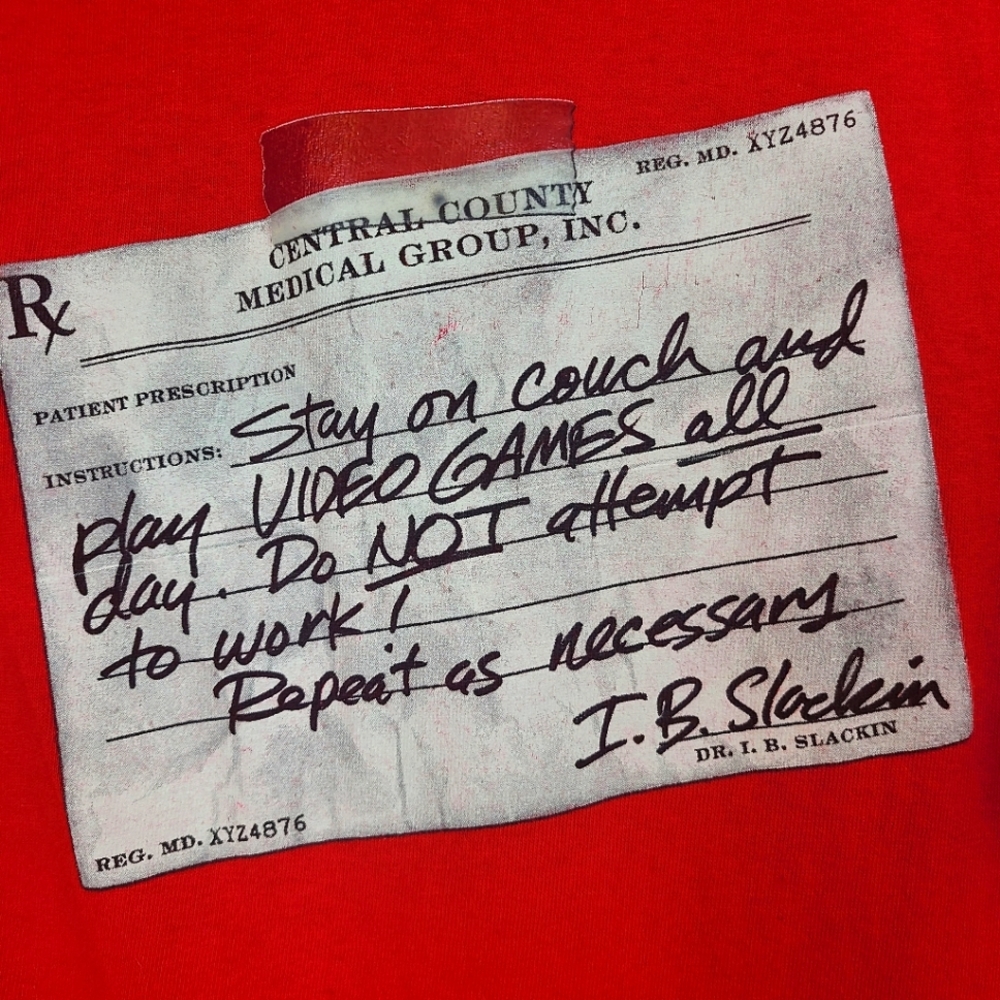 REG. MD. XYZ4876
CENTRAL COUNTY
MEDICAL GROUP, INC.
Rx
PATIENT PRESCRIPTION
INSTRUCTIONS: Stay on couch and
play VIDEO GAMES all
day. Do NOT attempt
to work!
Repeat as necessary
I.B. Slackin
DR. I. B. SLACKIN
REG. MD. XYZ4876